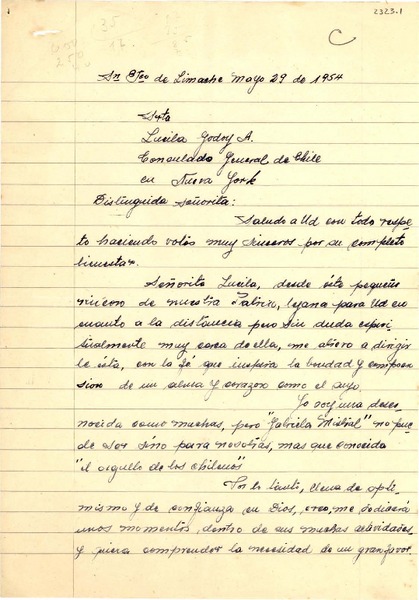 2323.1
C
35
17
Sn Fco de Limache Mayo 29 de 1954
Srta
Lucila Godoy A.
Consulado General de Chile
en Nueva York
Distinguida Señorita:
Saludo a Ud con todo respe-
to haciendo votos muy sinceros por su completo
bienestar.
Señorita Lucila, desde éste pequeño
rincón de nuestra Patria, lejana para Ud en
cuanto a la distancia pero sin duda espiri-
tualmente muy cerca de ella, me atrevo a dirigir
le ésta, con la fé que inspira la bondad y compren
sion de un alma y corazon como el suyo.
Yo soy una desco-
nocida como muchas, pero "Gabriela Mistral" no pue
de ser sino para nosotras, mas que conocida
"el orgullo de los chilenos"
Por lo tanto, llena de opti-
mismo y de confianza en Dios, creo, me dedicará
unos momentos, dentro de sus muchas actividades,
y quiera comprender la necesidad de un gran favor.